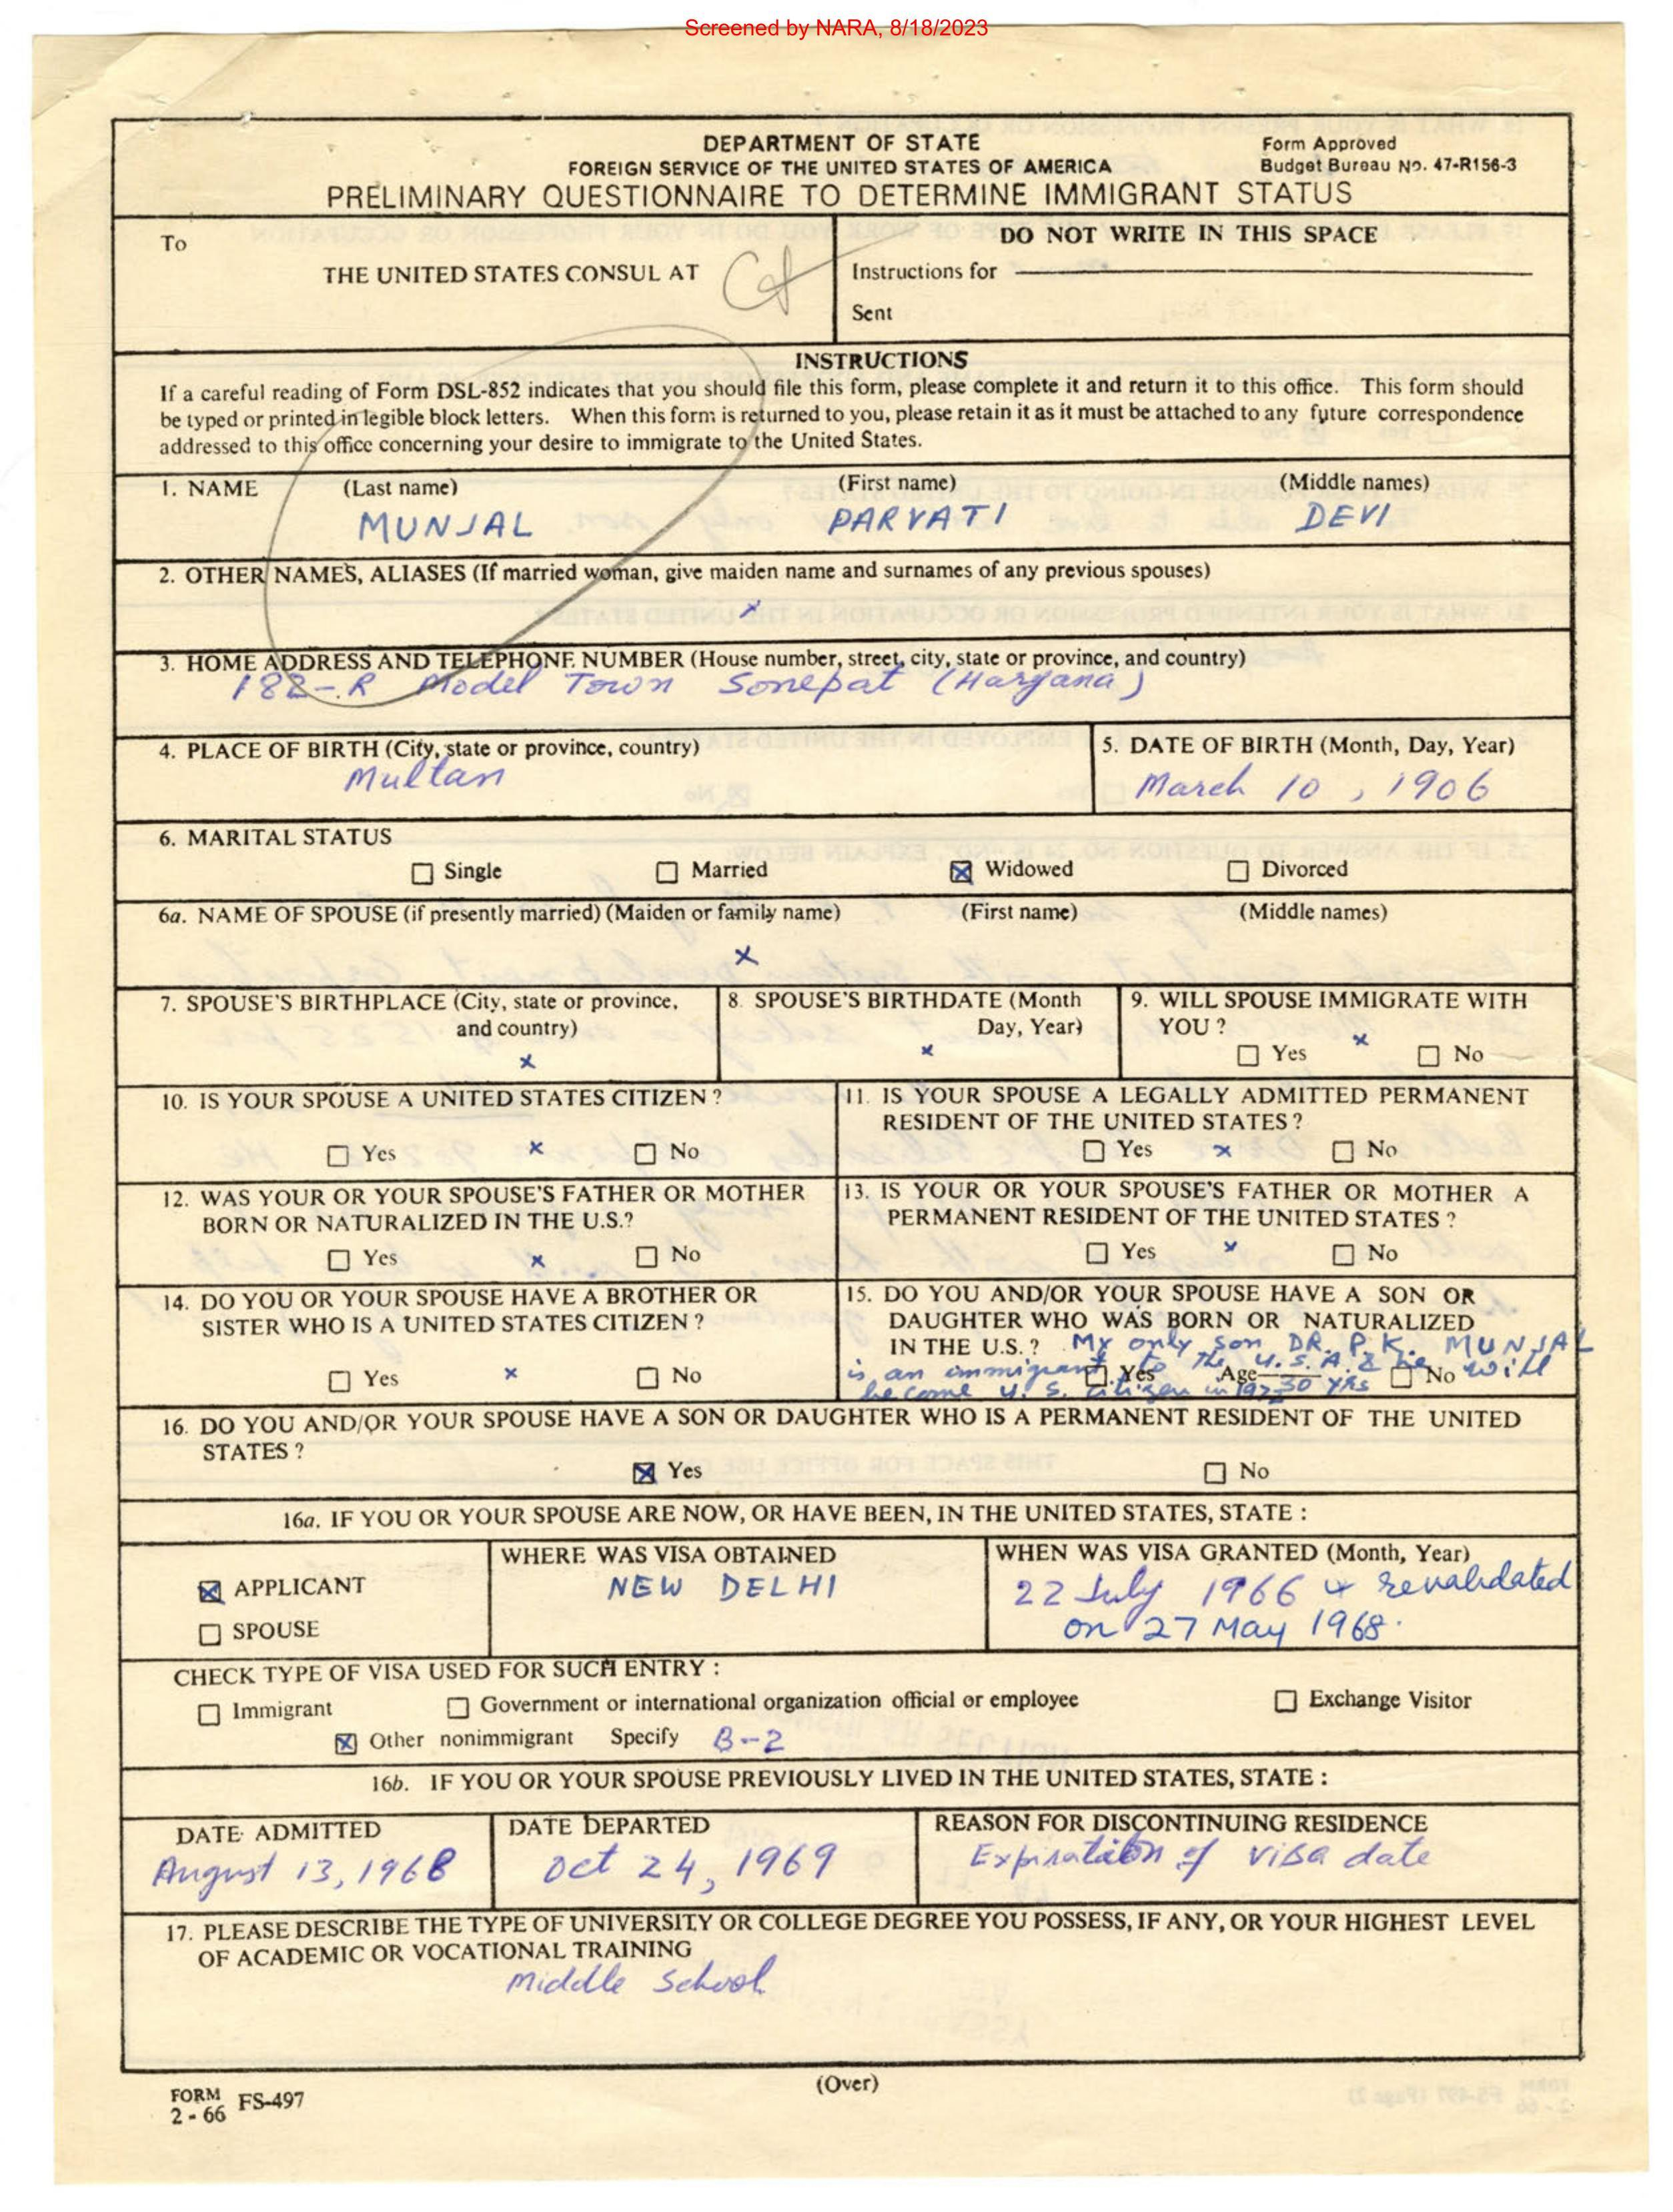 Screened by NARA, 8/18/2023
DEPARTMENT OF STATE
FOREIGN SERVICE OF THE UNITED STATES OF AMERICA
PRELIMINARY QUESTIONNAIRE TO DETERMINE IMMIGRANT STATUS
Form Approved
Budget Bureau No. 47-R156-3
To
THE UNITED STATES CONSUL AT
DO NOT WRITE IN THIS SPACE
Instructions for
Sent
INSTRUCTIONS
If a careful reading of Form DSL-852 indicates that you should file this form, please complete it and return it to this office. This form should
be typed or printed in legible block letters. When this form is returned to you, please retain it as it must be attached to any future correspondence
addressed to this office concerning your desire to immigrate to the United States.
1. NAME (Last name) (First name) (Middle names)
MUNJAL PARVATI DEVI
2. OTHER NAMES, ALIASES (If married woman, give maiden name and surnames of any previous spouses)
x
3. HOME ADDRESS AND TELEPHONE NUMBER (House number, street, city, state or province, and country)
182-R Model Town Sonepat (Haryana)
4. PLACE OF BIRTH (City, state or province, country)
Multan
5. DATE OF BIRTH (Month, Day, Year)
March 10, 1906
6. MARITAL STATUS
☐ Single ☐ Married ☒ Widowed ☐ Divorced
6a. NAME OF SPOUSE (if presently married) (Maiden or family name) (First name) (Middle names)
x
7. SPOUSE'S BIRTHPLACE (City, state or province,
and country)
x
8. SPOUSE'S BIRTHDATE (Month
Day, Year)
x
9. WILL SPOUSE IMMIGRATE WITH
YOU ?
☐ Yes x ☐ No
10. IS YOUR SPOUSE A UNITED STATES CITIZEN ?
☐ Yes x ☐ No
11. IS YOUR SPOUSE A LEGALLY ADMITTED PERMANENT
RESIDENT OF THE UNITED STATES ?
☐ Yes x ☐ No
12. WAS YOUR OR YOUR SPOUSE'S FATHER OR MOTHER
BORN OR NATURALIZED IN THE U.S.?
☐ Yes x ☐ No
13. IS YOUR OR YOUR SPOUSE'S FATHER OR MOTHER A
PERMANENT RESIDENT OF THE UNITED STATES ?
☐ Yes x ☐ No
14. DO YOU OR YOUR SPOUSE HAVE A BROTHER OR
SISTER WHO IS A UNITED STATES CITIZEN ?
☐ Yes x ☐ No
15. DO YOU AND/OR YOUR SPOUSE HAVE A SON OR
DAUGHTER WHO WAS BORN OR NATURALIZED
IN THE U.S. ? My only son DR. P. K. MUNJAL
is an immigrant to the U.S.A. & he will
☐ Yes Age 30 YRS ☐ No
become U.S. Citizen in
16. DO YOU AND/OR YOUR SPOUSE HAVE A SON OR DAUGHTER WHO IS A PERMANENT RESIDENT OF THE UNITED
STATES ?
☒ Yes ☐ No
16a. IF YOU OR YOUR SPOUSE ARE NOW, OR HAVE BEEN, IN THE UNITED STATES, STATE :
☒ APPLICANT
☐ SPOUSE
WHERE WAS VISA OBTAINED
NEW DELHI
WHEN WAS VISA GRANTED (Month, Year)
22 July 1966 & revalidated
on 27 May 1968.
CHECK TYPE OF VISA USED FOR SUCH ENTRY :
☐ Immigrant ☐ Government or international organization official or employee ☐ Exchange Visitor
☒ Other nonimmigrant Specify B-2
16b. IF YOU OR YOUR SPOUSE PREVIOUSLY LIVED IN THE UNITED STATES, STATE :
DATE ADMITTED
August 13, 1968
DATE DEPARTED
Oct 24, 1969
REASON FOR DISCONTINUING RESIDENCE
Expiration of visa date
17. PLEASE DESCRIBE THE TYPE OF UNIVERSITY OR COLLEGE DEGREE YOU POSSESS, IF ANY, OR YOUR HIGHEST LEVEL
OF ACADEMIC OR VOCATIONAL TRAINING
Middle School
(Over)
FORM FS-497
2-66